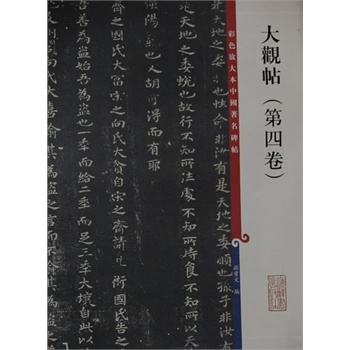 大觀帖（第四卷）
彩色放大本中國著名碑帖
孫寶文 編
天地之委和也性命非汝有是天地之委順也孫子非汝有
是天地之委蛻也故行不知所往處不知所持食不知所
陽氣也又胡可得而有耶
之國氏大富宋之向氏大貧自宋之齊請其術國氏告之
吾善為盜始吾為盜也一年而給二年而足三年大壤自此以